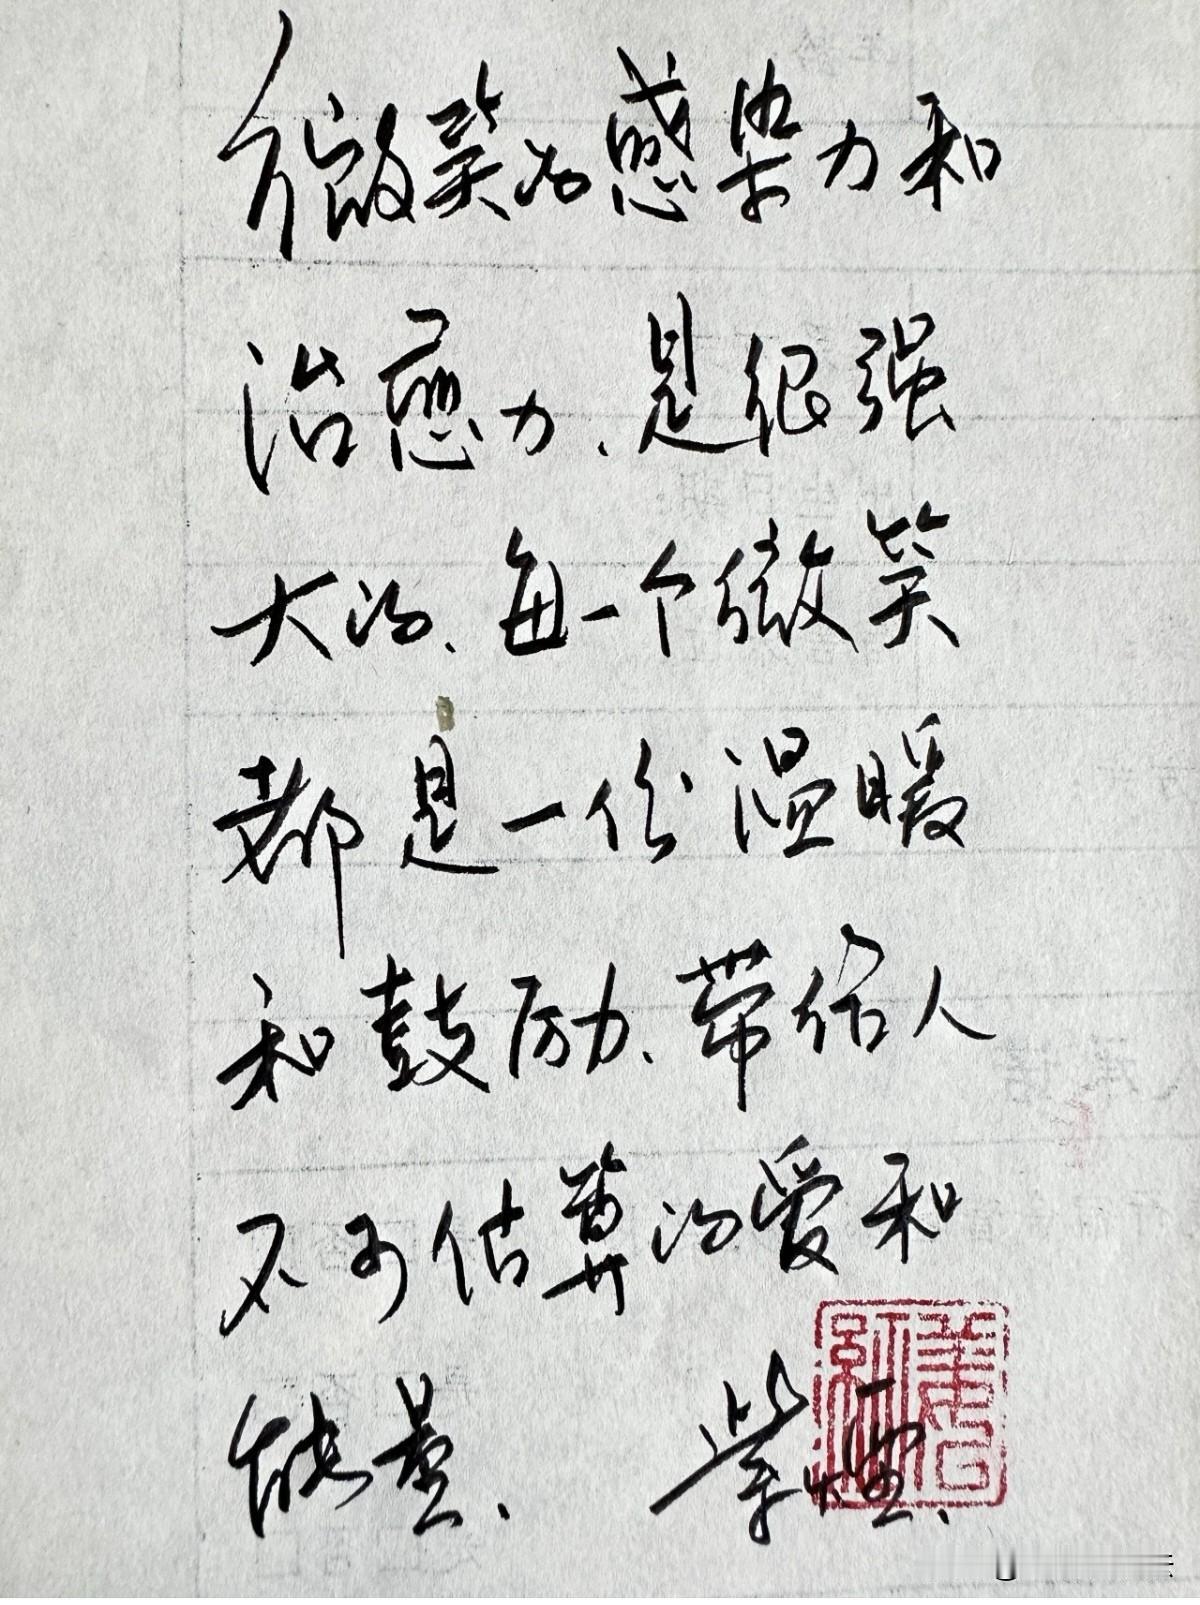 微笑的感染力和
治愈力、是很强
大的、每一个微笑
都是一份温暖
和鼓励、带给人
不可估算的爱和
能量、